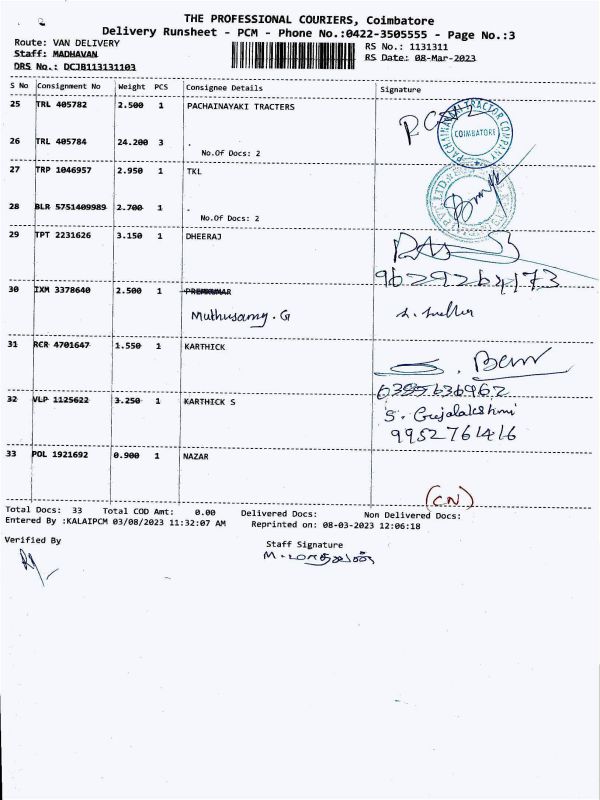 THE PROFESSIONAL COURIERS, Coimbatore
Delivery Runsheet - PCM - Phone No.:0422-3505555 - Page No.:3
Route: VAN DELIVERY
Staff: MADHAVAN
DRS No.: DCJB113131103
RS No.: 1131311
RS Date: 08-Mar-2023
S No Consignment No Weight PCS Consignee Details Signature
25 TRL 405782 2.500 1 PACHAINAYAKI TRACTERS
COIMBATORE
26 TRL 405784 24.200 3 .
No.Of Docs: 2
27 TRP 1046957 2.950 1 TKL
28 BLR 5751409989 2.700 1 .
No.Of Docs: 2
29 TPT 2231626 3.150 1 DHEERAJ
9629264173
30 IXM 3378640 2.500 1 PREMKUMAR
Muthusamy. G
31 RCR 4701647 1.550 1 KARTHICK
6385636962
32 VLP 1125622 3.250 1 KARTHICK S
S. Gujalakshmi
9952761416
33 POL 1921692 0.900 1 NAZAR
(CN)
Total Docs: 33 Total COD Amt: 0.00 Delivered Docs: Non Delivered Docs:
Entered By :KALAIPCM 03/08/2023 11:32:07 AM Reprinted on: 08-03-2023 12:06:18
Verified By
Staff Signature